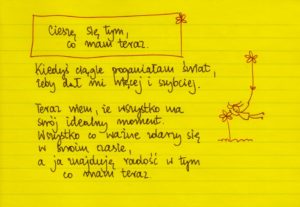 Cieszę się tym,
co mam teraz.
Kiedyś ciągle poganiałam świat,
żeby dał mi więcej i szybciej.
Teraz wiem, że wszystko ma
swój idealny moment.
Wszystko co ważne zdarzy się
w swoim czasie,
a ja znajduję radość w tym
co mam teraz.